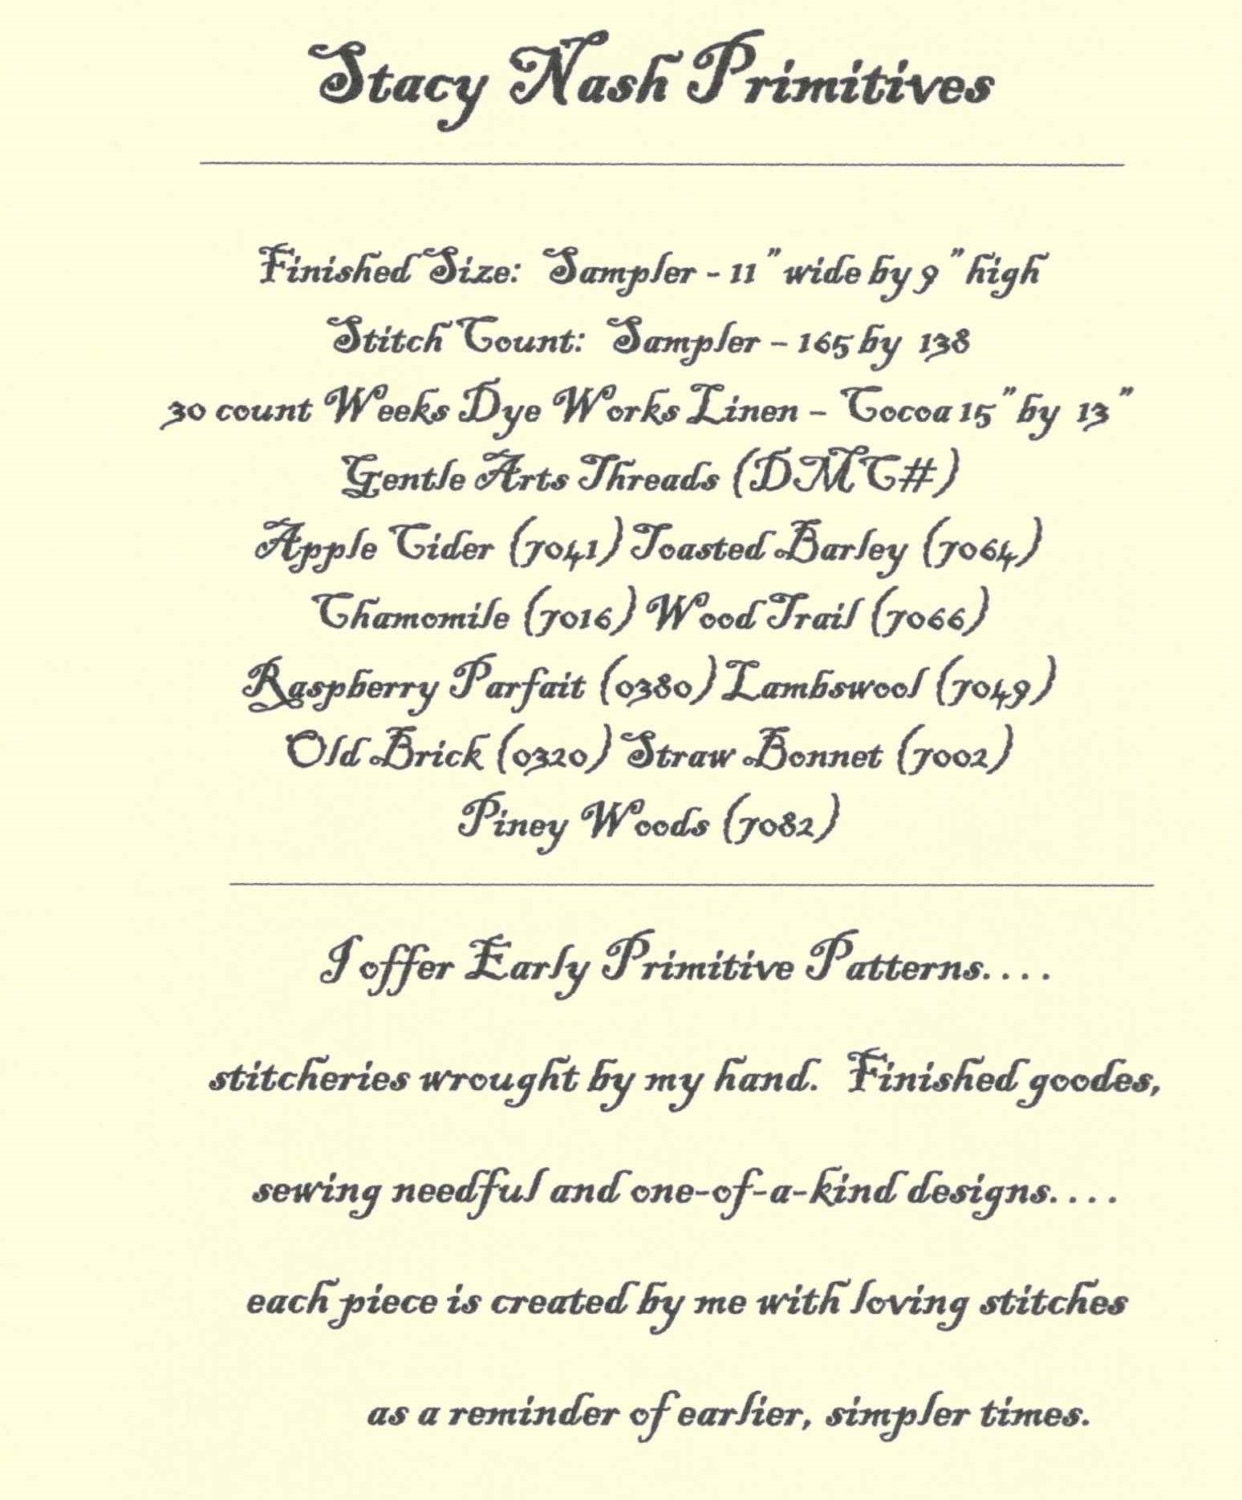 Stacy Nash Primitives
Finished Size: Sampler - 11" wide by 9" high
Stitch Count: Sampler - 165 by 138
30 count Weeks Dye Works Linen - Cocoa 15" by 13"
Gentle Arts Threads (DMC#)
Apple Cider (7041) Toasted Barley (7064)
Chamomile (7016) Wood Trail (7066)
Raspberry Parfait (0380) Lambswool (7049)
Old Brick (0320) Straw Bonnet (7002)
Piney Woods (7082)
I offer Early Primitive Patterns....
stitcheries wrought by my hand. Finished goodes,
sewing needful and one-of-a-kind designs....
each piece is created by me with loving stitches
as a reminder of earlier, simpler times.